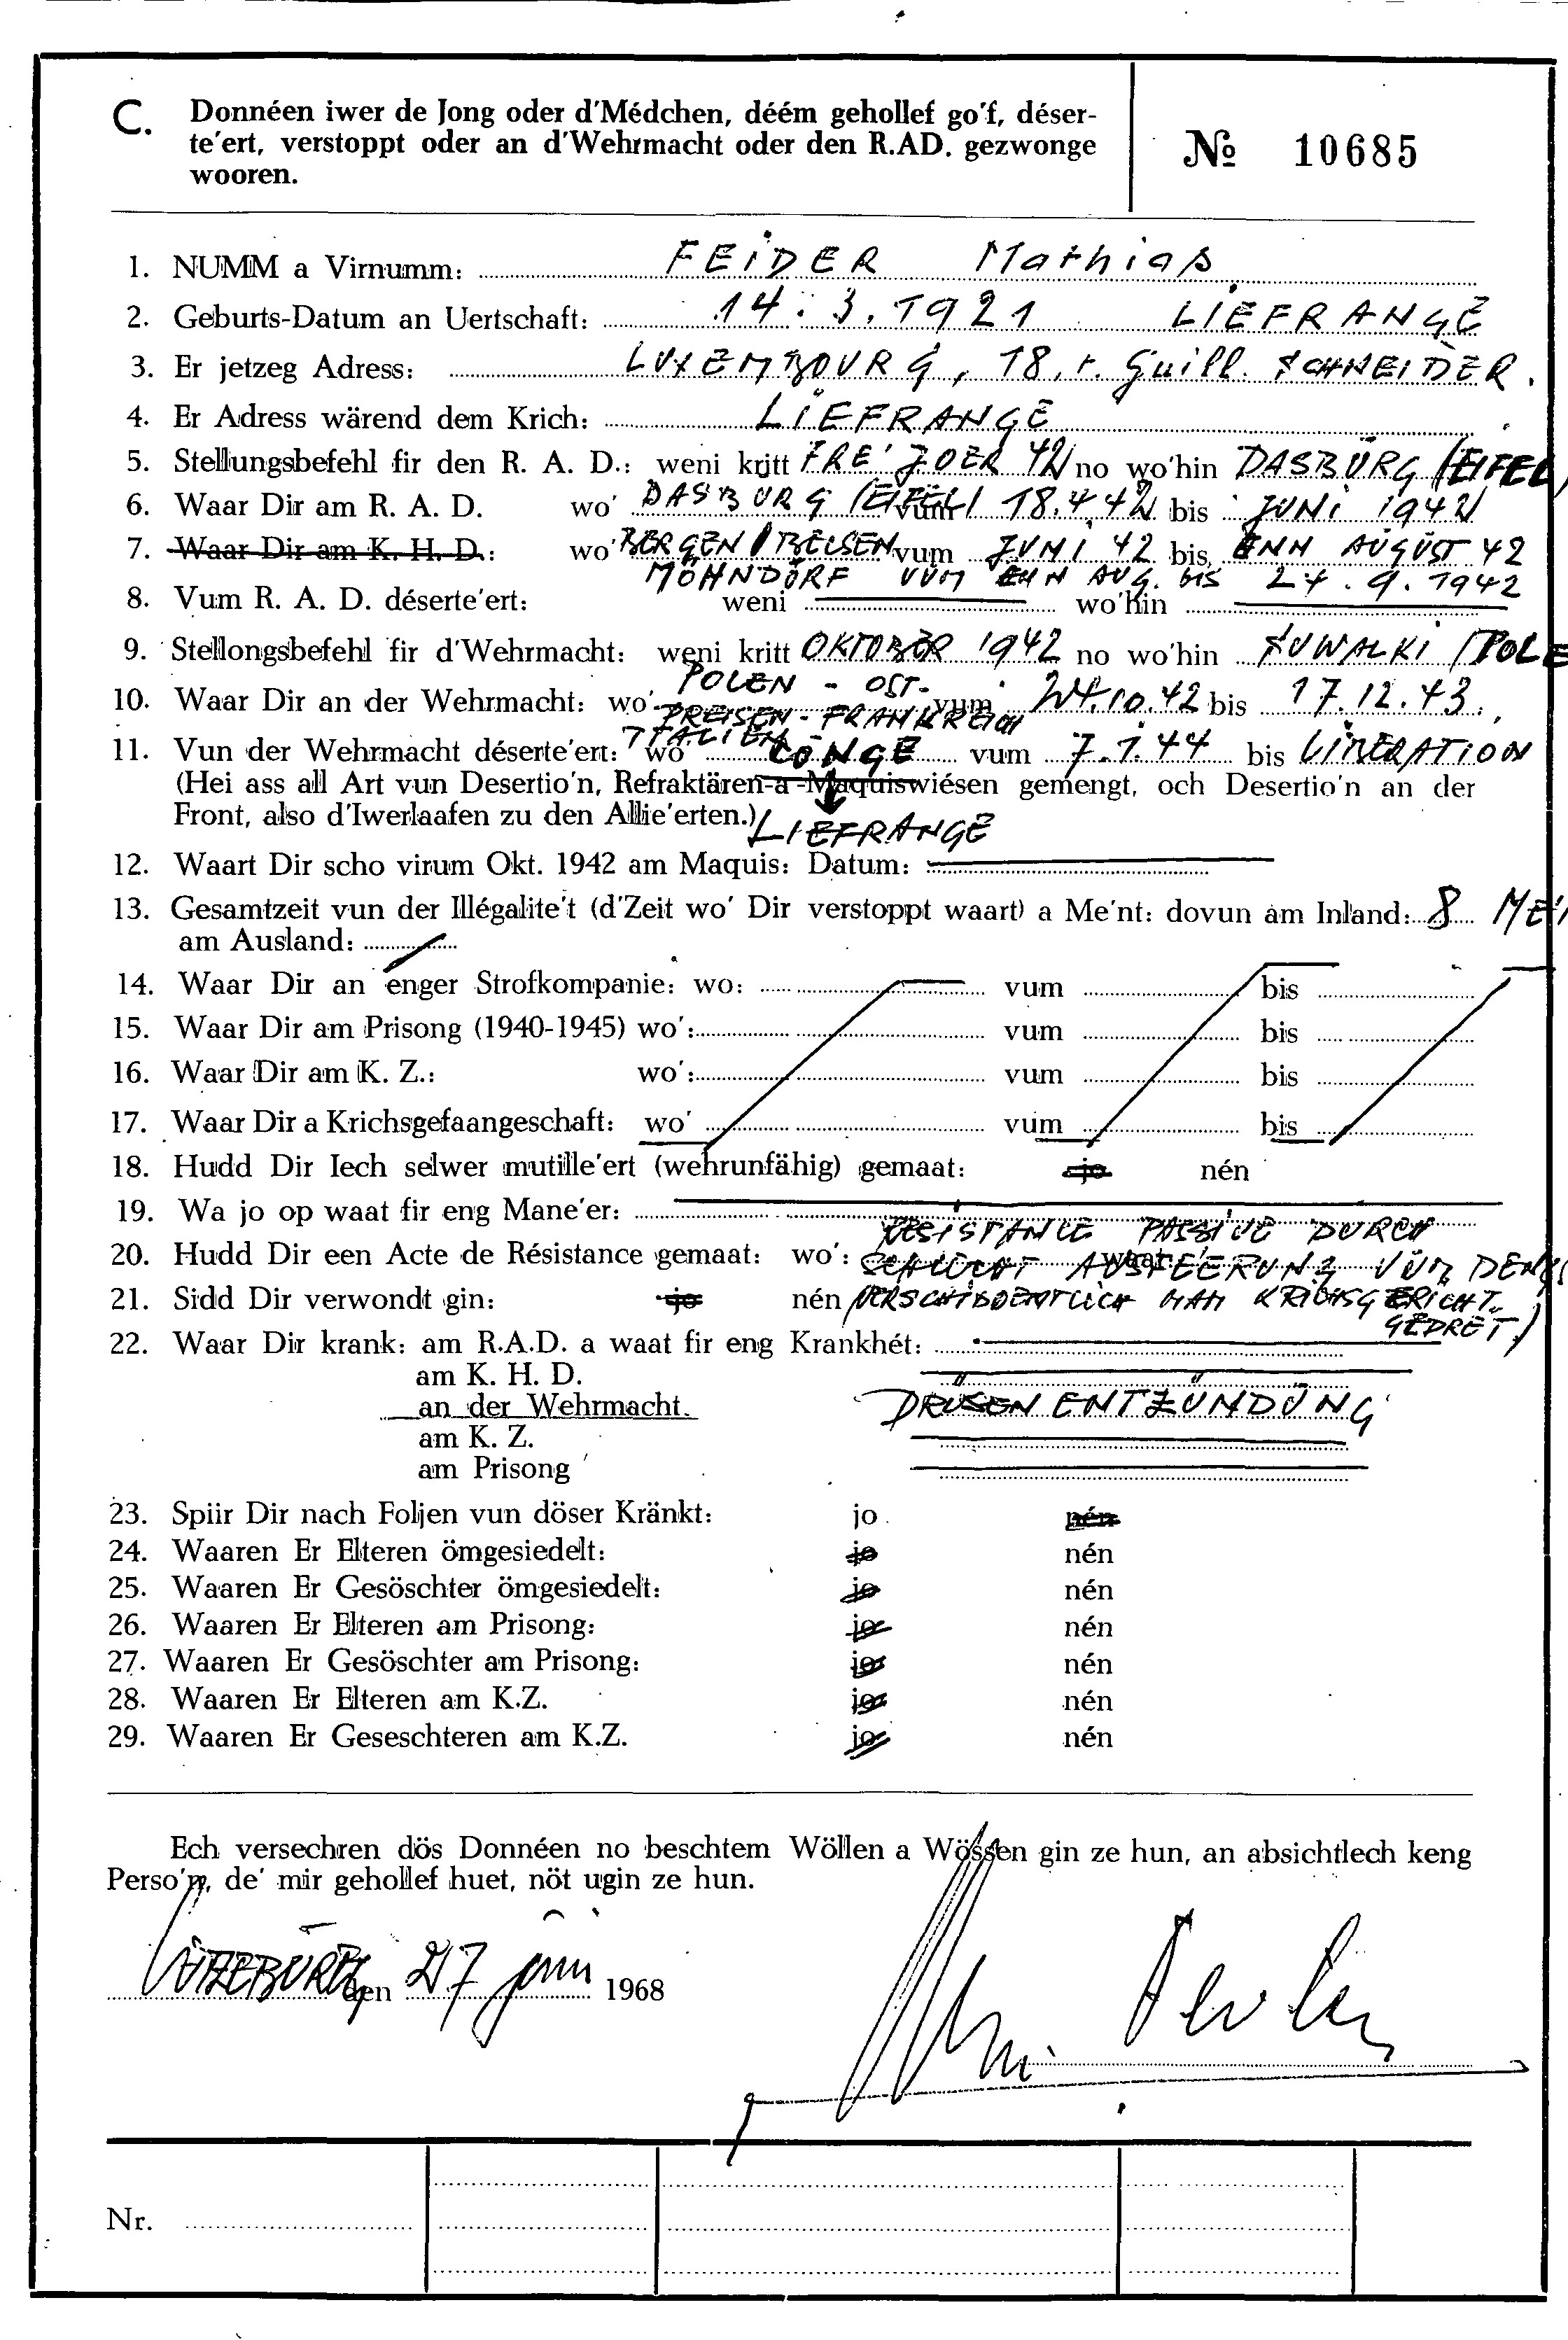 C. Donnéen iwer de Jong oder d'Médchen, déém gehollef go'f, déser-
te'ert, verstoppt oder an d'Wehrmacht oder den R.AD. gezwonge
wooren.
№ 10685
1. NUMM a Virnumm: FEIDER Mathias
2. Geburts-Datum an Uertschaft: 14.3.1921 LIEFRANGE
3. Er jetzeg Adress: LUXEMBOURG, 18, r. Guill. SCHNEIDER.
4. Er Adress wärend dem Krich: LIEFRANGE
5. Stellungsbefehl fir den R. A. D.: weni kritt FRE'JOER 42 no wo'hin DASBURG (EIFEL)
6. Waar Dir am R. A. D. wo' DASBURG (EIFEL) vum 18.4.42 bis JUNI 1942
7. Waar Dir am K. H. D.: wo' BERGEN/BELSEN vum JUNI 42 bis ENN AUGUST 42
MÖHNDORF VUM ENN AUG. BIS 24.9.1942
8. Vum R. A. D. déserte'ert: weni wo'hin
9. Stellongsbefehl fir d'Wehrmacht: weni kritt OKTOBER 1942 no wo'hin SUWALKI (POLE
POLEN - OST-
10. Waar Dir an der Wehrmacht: wo' vum 24.10.42 bis 17.12.43.
PREISEN - FRANKREICH
ITALIEN
11. Vun der Wehrmacht déserte'ert: wo' vum 7.1.44 bis LIBERATION
(Hei ass all Art vun Desertio'n, Refraktären a Maquiswiésen gemengt, och Desertio'n an der
Front, also d'Iwerlaafen zu den Allie'erten.) LIEFRANGE
12. Waart Dir scho virum Okt. 1942 am Maquis: Datum:
13. Gesamtzeit vun der Illégalite't (d'Zeit wo' Dir verstoppt waart) a Me'nt: dovun am Inland: 8 ME'
am Ausland:
14. Waar Dir an enger Strofkompanie: wo: vum bis
15. Waar Dir am Prisong (1940-1945) wo': vum bis
16. Waar Dir am K. Z.: wo': vum bis
17. Waar Dir a Krichsgefaangeschaft: wo' vum bis
18. Hudd Dir Iech selwer mutille'ert (wehrunfähig) gemaat: jo nén
19. Wa jo op waat fir eng Mane'er:
RESISTANCE PASSIVE DURCH
20. Hudd Dir een Acte de Résistance gemaat: wo': waat: SCHLECHT AUSFEERUNG VUM DENG
21. Sidd Dir verwondt gin: jo nén (VERSCHIDDENTLICH MAM KRICHSGERICHT
GEDRET)
22. Waar Dir krank: am R.A.D. a waat fir eng Krankhét:
am K. H. D.
an der Wehrmacht. DRÜSENENTZÜNDUNG
am K. Z.
am Prisong
23. Spiir Dir nach Foljen vun döser Kränkt: jo nén
24. Waaren Er Elteren ömgesiedelt: jo nén
25. Waaren Er Gesöschter ömgesiedelt: jo nén
26. Waaren Er Elteren am Prisong: jo nén
27. Waaren Er Gesöschter am Prisong: jo nén
28. Waaren Er Elteren am K.Z. jo nén
29. Waaren Er Geseschteren am K.Z. jo nén
Ech versechren dös Donnéen no beschtem Wöllen a Wössen gin ze hun, an absichtlech keng
Perso'n, de' mir gehollef huet, nöt ugin ze hun.
LËTZEBURG den 27 juni 1968
Nr.